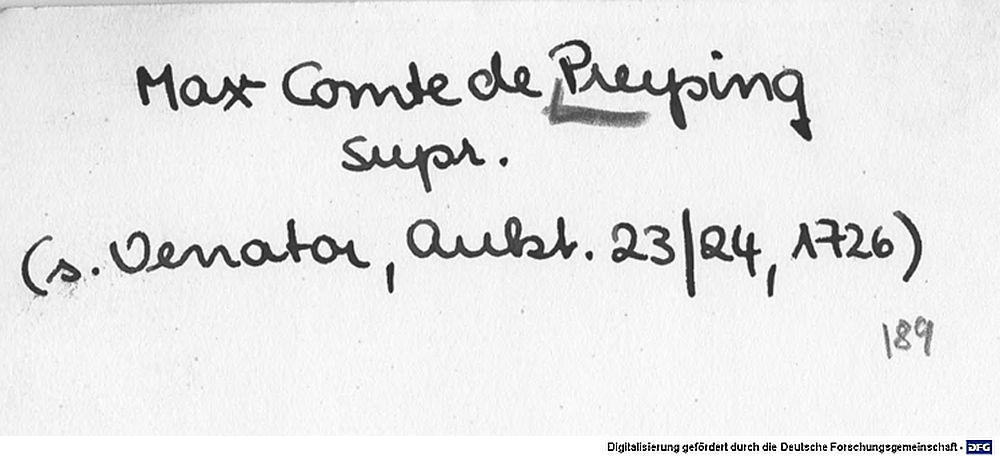 Max Comte de Preysing
supr.
(s. Venator, Aukt. 23/24, 1726)
189
Digitalisierung gefördert durch die Deutsche Forschungsgemeinschaft - DFG